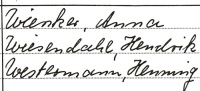 Wienker, Anna
Wiesendahl, Hendrik
Westermann, Henning